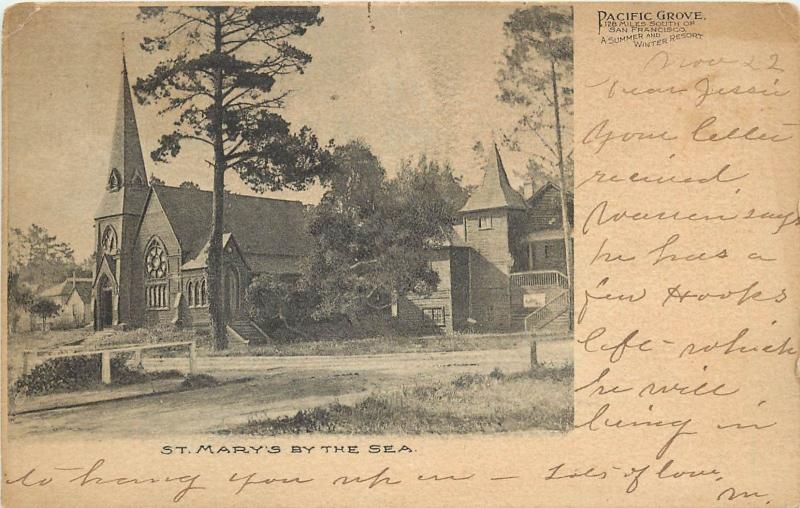 PACIFIC GROVE,
128 MILES SOUTH OF
SAN FRANCISCO.
A SUMMER AND
WINTER RESORT
Nov 22
Dear Jessie
Your letter
received
Warren says
he has a
few Hooks
left - which
he will
bring in
ST. MARY'S BY THE SEA.
to hang you up on - Lots of love.
M.